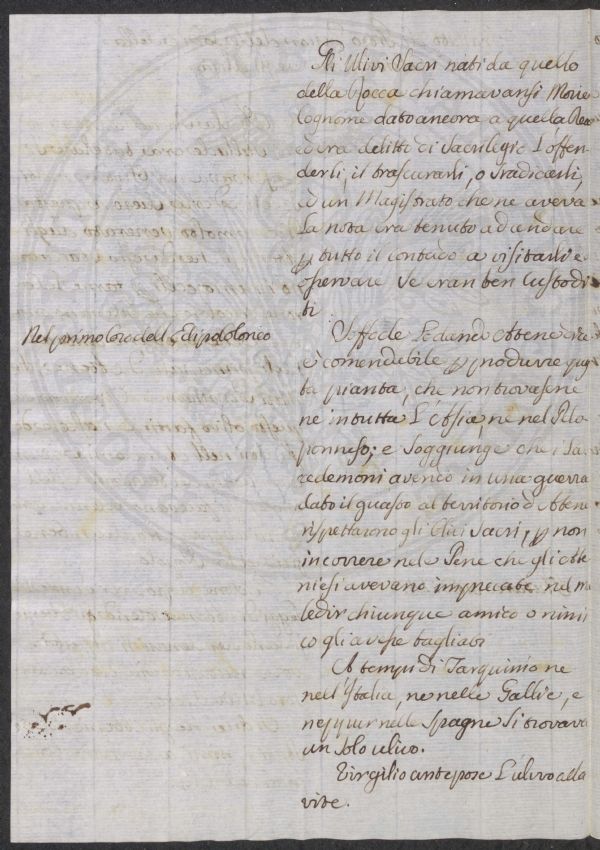 Gli Ulivi Sacri nati da quello
della Rocca chiamavansi Morie
Cognome dato ancora a quella
ed era delitto di Sacrilegio L'offen
derli, il trascurarli, o Sradicarli,
ed un Magistrato che ne aveva
La nota era tenuto ad andare
p tutto il contado a visitarli e
osservare Se eran ben Custodi
ti
Nel primo Coro dell Edipo Coloneo
Sofocle Lodando Atene
è comendabile p produrre ques
ta pianta, che non trovasene
ne in tutta L'Assia, ne nel Pelo
ponneso; e Soggiunge che i La
cedemoni avendo in una guerra
dato il guasto al territorio d Atene
rispettarono gli Ulivi Sacri, p non
incorrere nele Pene che gli Ate
niesi avevano imprecate nel ma
ledir chiunque amico o nimi
co gli avesse tagliati
A tempi di Tarquinio ne
nell'Italia, ne nelle Gallie, e
neppur nelle Spagne Si trovava
un solo ulivo.
Virgilio antepose L'ulivo alla
vite.